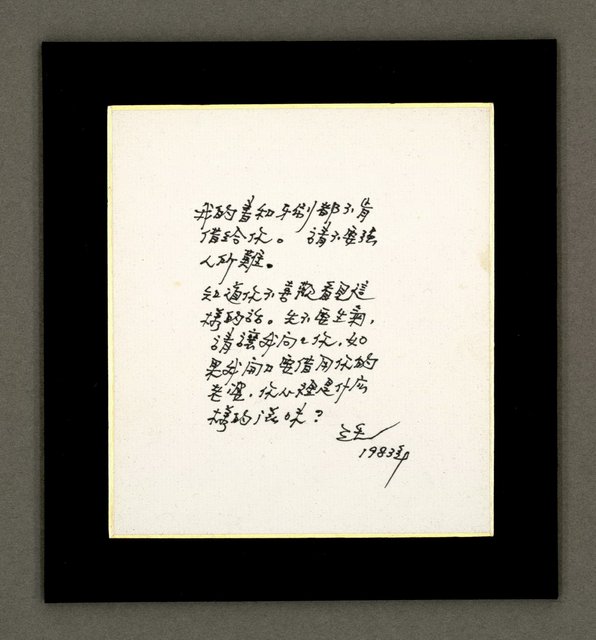 我的書和牙刷都不肯
借給你。請不要強
人所難。
知道你不喜歡看見這
樣的話。先不要生氣,
請讓我問問你,如
果我開口要借用你的
老婆,你心裡是什麼
樣的滋味?
1983年